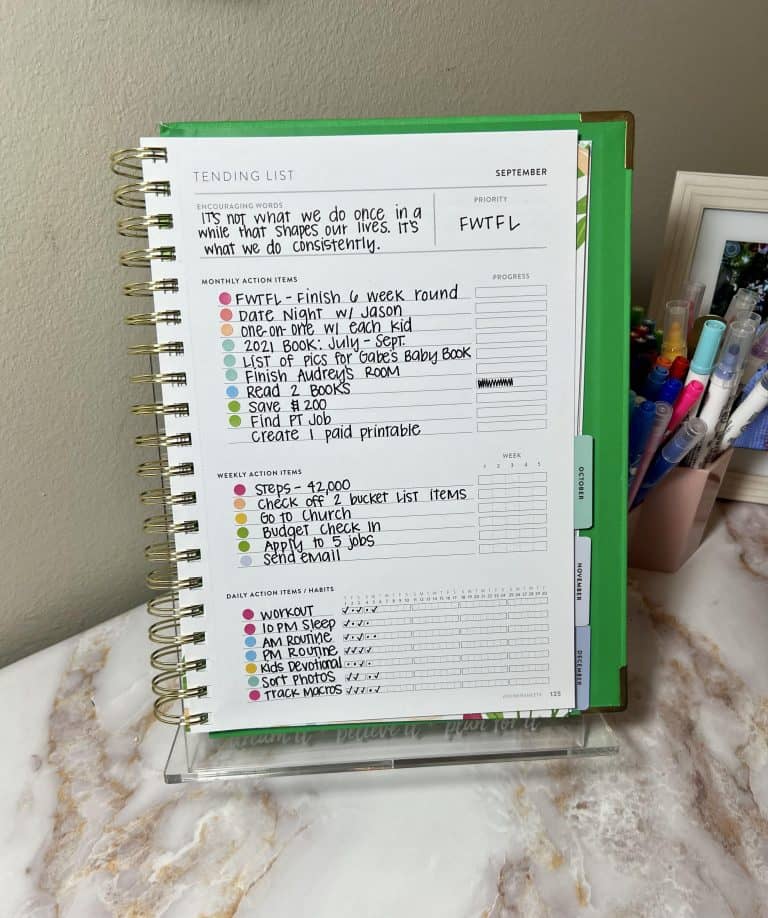 TENDING LIST
SEPTEMBER
ENCOURAGING WORDS
IT'S NOT WHAT WE DO ONCE IN A
WHILE THAT SHAPES OUR LIVES. IT'S
WHAT WE DO CONSISTENTLY.
PRIORITY
FWTFL
MONTHLY ACTION ITEMS
PROGRESS
FWTFL - FINISH 6 WEEK ROUND
DATE NIGHT W/ JASON
ONE-ON-ONE W/ EACH KID
2021 BOOK: JULY - SEPT.
LIST OF PICS FOR GABE'S BABY BOOK
FINISH AUDREY'S ROOM
READ 2 BOOKS
SAVE $200
FIND PT JOB
CREATE 1 PAID PRINTABLE
WEEKLY ACTION ITEMS
WEEK
1 2 3 4 5
STEPS - 42,000
CHECK OFF 2 BUCKET LIST ITEMS
GO TO CHURCH
BUDGET CHECK IN
APPLY TO 5 JOBS
SEND EMAIL
DAILY ACTION ITEMS / HABITS
WORKOUT
10 PM SLEEP
AM ROUTINE
PM ROUTINE
KIDS DEVOTIONAL
SORT PHOTOS
TRACK MACROS
125
OCTOBER
NOVEMBER
DECEMBER
dream it believe it plan for it